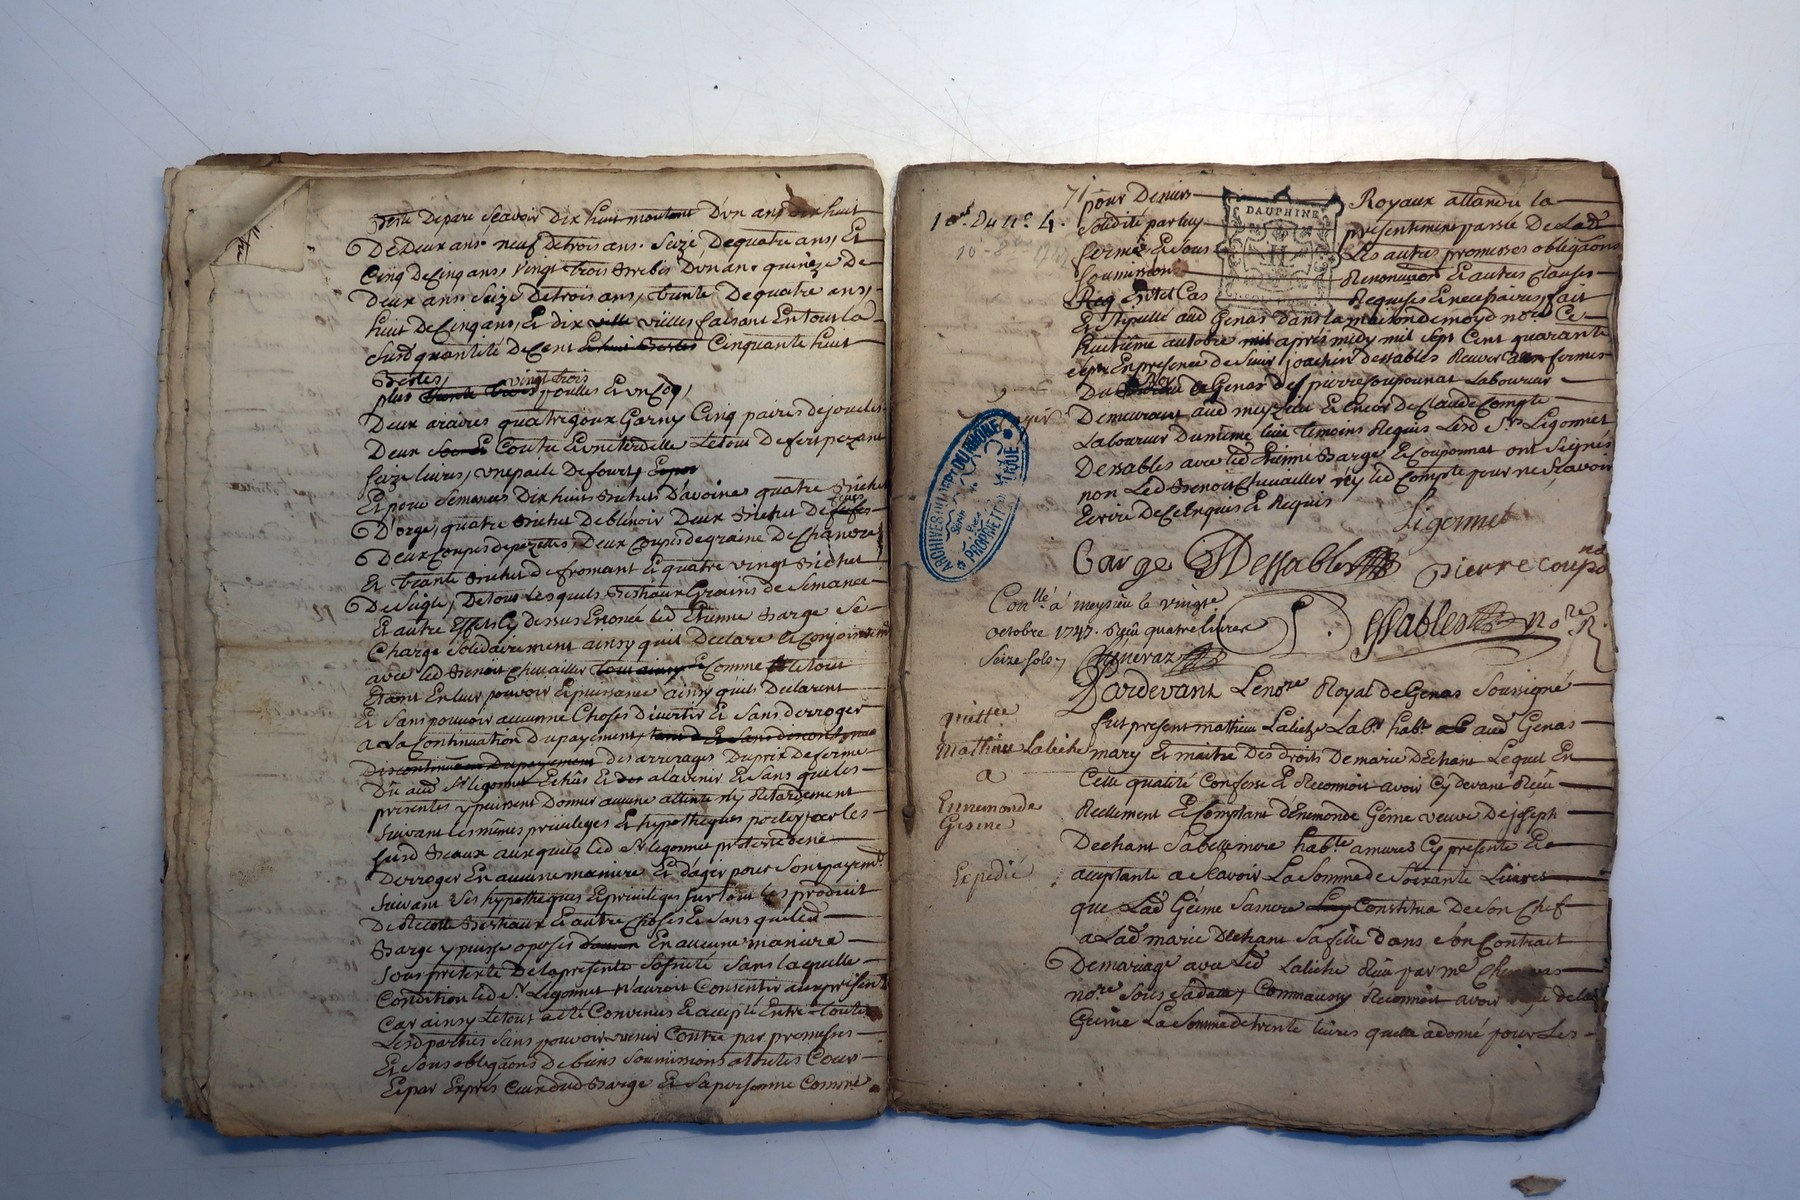 Deux ans neuf de trois ans. Seize de quatre ans, Et
Cinq de Cinq ans, vingt trois Brebis d'un an. quinze de
Deux ans Seize de trois ans, trante de quatre ans,
huit de Cinq ans, Et dix vielles faisant En tout la
Susd quantité de Cent Cinquante huit
Bestes,
vingt trois
plus poulles Et un Coq,
Deux araires quatre joux Garny Cinq paires de joucles
Deux Coutre
Saize livres, une paile de fourt
Et pour Semances dix huit Bichet D'avoine quatre Bichet
D'orge, quatre Bichet de blé noir Deux Bichet de feves
Deux Coupes de pezettes, Deux Coupes de graine de Chanvre
Et trante Bichet de fromant Et quatre vingt Bichet
De Seigle, De tous lesquels Bestiaux Grains de Semance
Et autre Effets Cy dessus Enoncé led Etienne Barge Se
Charge Solidairement ainsy quil Declare Et Conjointemt
avec led Benoit Chevallier Comme le tout
Etant En leur pouvoir Et puissance ainsy quils Declarent
Et Sans pouvoir aucunne Choses divertir Et Sans derroger
a la Continuation du payement
des arrerages Du prix De ferme
Dû aud Sr Ligonnet Echûs Et a lavenir Et Sans que les
presentes y puissent Donner aucune atteinte ny Retardement
Suivant les mêmes privileges Et hypotheques
Susd Beaux auxquels led Sr Ligonnet proteste de ne
Derroger En aucune maniere Et d'agir pour Son payemt
Suivant Ses hypotheques Et privileges Sur tout les produit
De Recolte Bestiaux Et autre Choses Et Sans que led
Barge y puisse oposer En aucune maniere
Sous pretexte de la presente Sans laquelle
Condition led Sr Ligonnet N'auroit Consentir aux presentes
Car ainsy le tout a été Convenus Et accepté Entre toutes
Lesd parties Sans pouvoir venir Contre par promesses
Et Sous obligaons de biens Soumissions a toutes Cours
Et par Exprés Ceux dud Barge Et Sa personne Comme
pour Deniers Royaux attandu la
1er. Du no. 4.
DAUPHINE
Solidité par luy presentement passée De Lade
ferme Et Sous Les autres promesses obligaons
Soumission Renonciaon Et autres Clauses
En tel Cas Requises Et necessaires, fait
Et Stipullé aud Genas Dans la maison de moyd nore Ce
huitieme autobre après midy mil Sept Cent quarante
Sept En presence de Sieur joachim dessables
Du Genas de Sr pierre Couponnat Laboureur
Demeurant aud meyzieu Et Encor De Claude Compte
Laboureur Du même lieu temoins Requis Lesd Srs Ligonnet
Dessables avec led Etienne Barge Et Couponnat ont Signés
non Led Benoit Chevallier ny led Compte pour ne Sçavoir
Ecrire De Ce Enquis Et Requis
Ligonnet
Barge Dessables pierre coupona
ARCHIVES DU DEPT DU RHONE
PROPRIETE PUBLIQUE
Conllé à meysieu le vingt
octobre 1747. Reçû quatre livres
Seize Sols
Dessables nore R.
Pardevant Le nore Royal de Genas Soussigné
quittce
fut present mathieu Laliche Labr habt aud Genas
Mathieu Laliche
mary Et maitre Des droits De marie Dechant Lequel En
a
Cette qualité Confesse Et Reconnoit avoir Cy devant Reçu
Ennemonde
Reellement Et Comptant d'Enemonde Gême veuve De joseph
Gesme
Dechant Sa belle mere habte Cy presente Et
Expedié
acceptante a Sçavoir La Somme de Soixante Livres
que Lad Gême Sa mere Constitua De Son Chef
a Lad marie Dechant Sa fille dans Son Contrait
De mariage avec Led Laliche Reçu par me
nore Sous Sa datte, Comm'aussy Reconnoit avoir Reçu de lad
Gême La Somme de trente livres quelle a donné pour Les